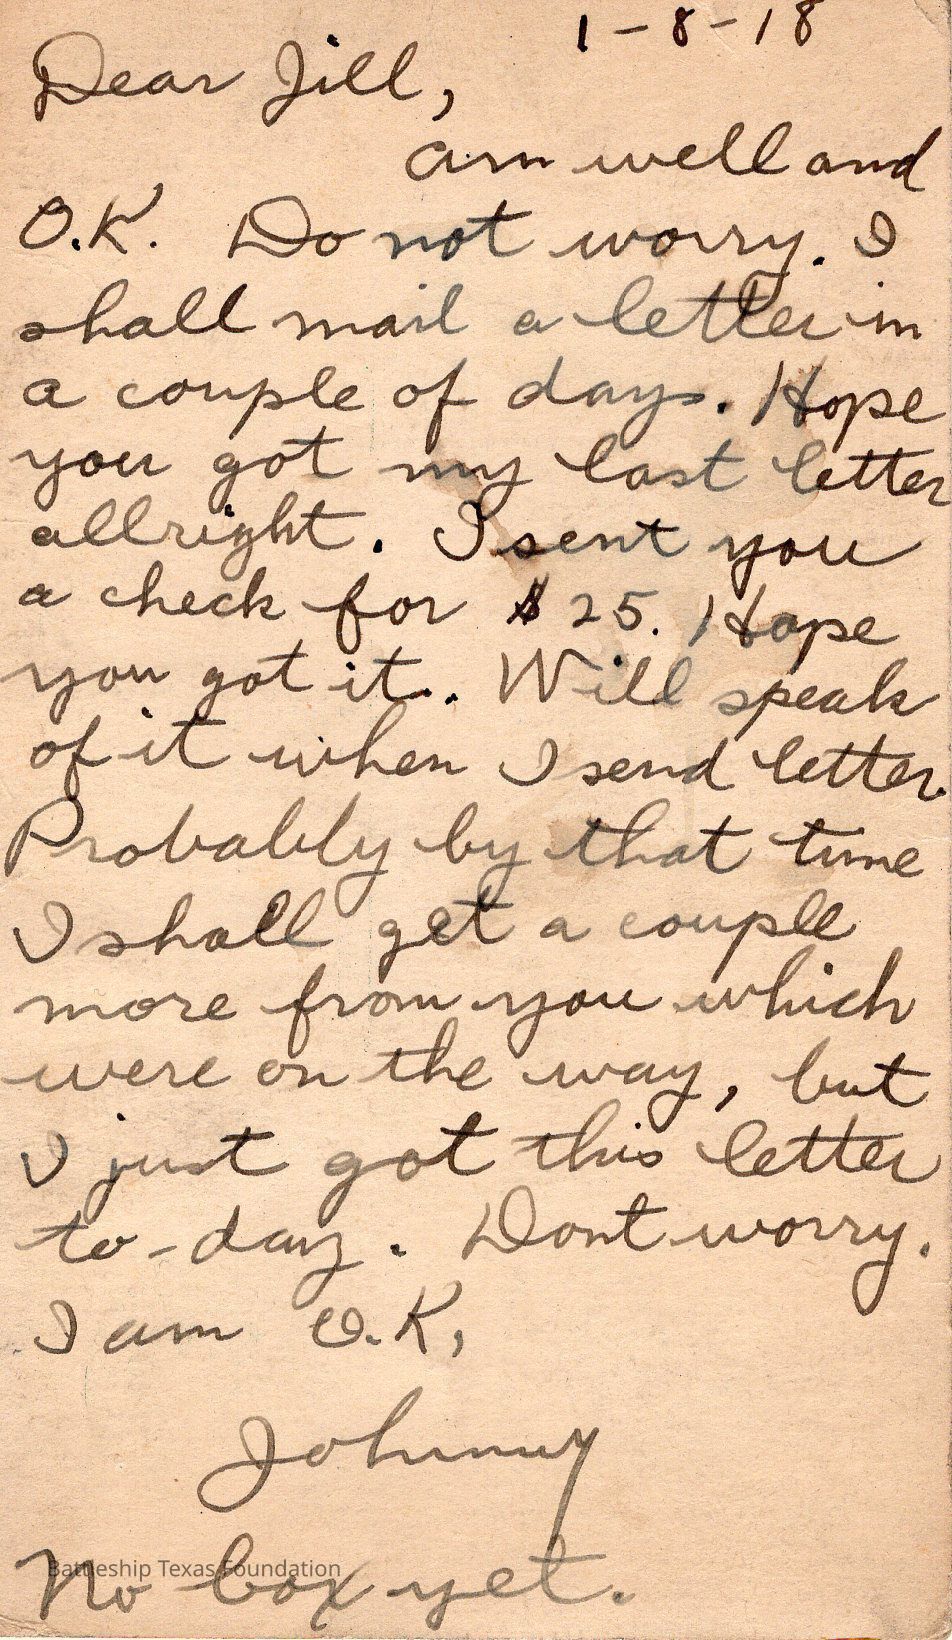 1-8-18
Dear Jill,
am well and
O.K. Do not worry. I
shall mail a letter in
a couple of days. Hope
you got my last letter
allright. I sent you
a check for $25. Hope
you got it. Will speak
of it when I send letter.
Probably by that time
I shall get a couple
more from you which
were on the way, but
I just got this letter
to-day. Dont worry.
I am O.K,
Johnny
No box yet.
Battleship Texas Foundation